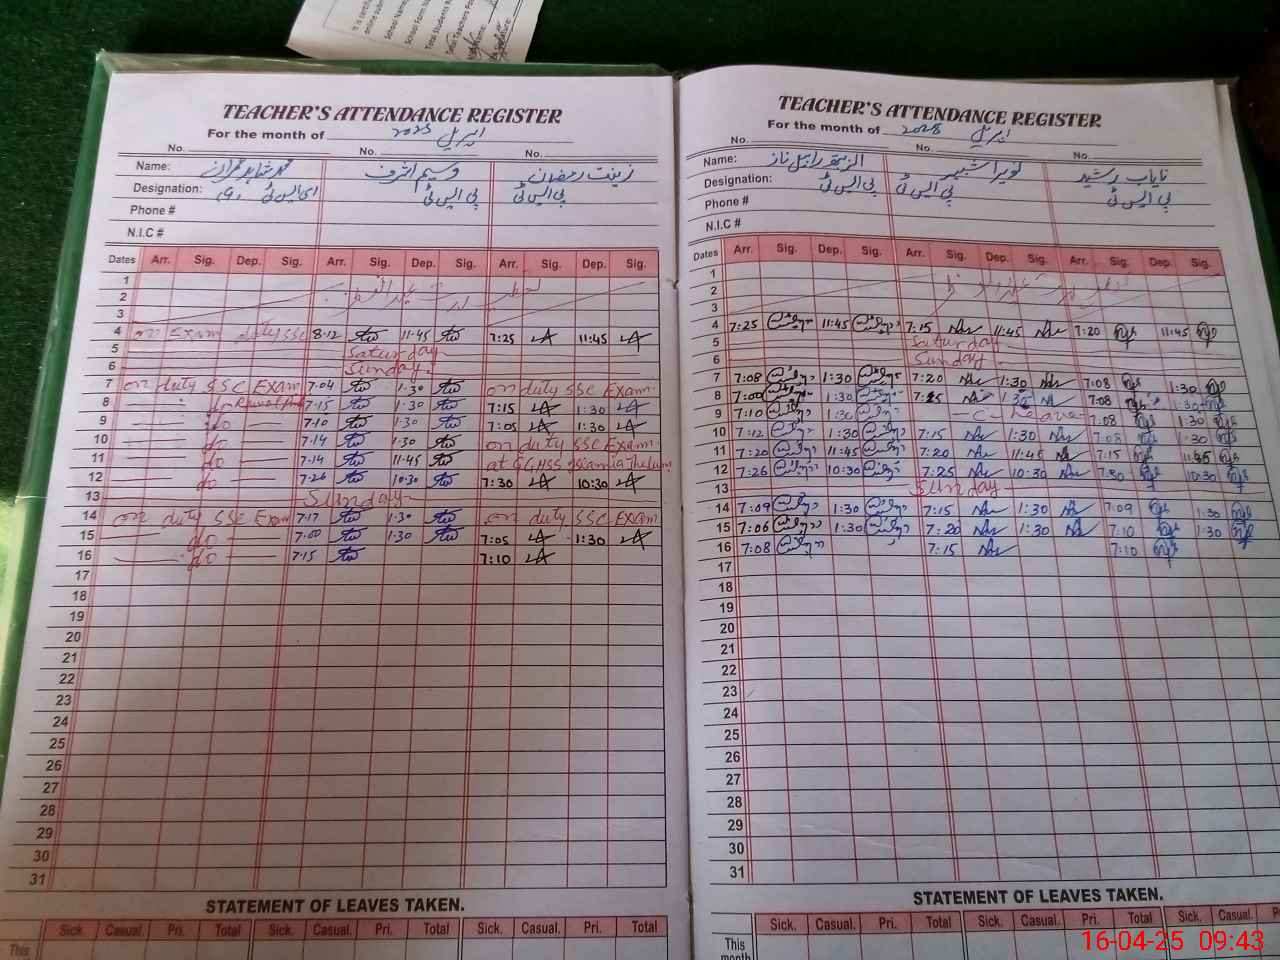 It is certif
online subm
School Name
School Form N
Total Students R
Total Teachers Fo
Name:
Signature:
TEACHER'S ATTENDANCE REGISTER
For the month of اپریل ۲۰۲۵
No. No. No.
Name: محمد شاہد عمران وسیم اشرف زینت رمضان
Designation: پی ایس ٹی پی ایس ٹی
Phone #
N.I.C #
Dates Arr. Sig. Dep. Sig. Arr. Sig. Dep. Sig. Arr. Sig. Dep. Sig.
1
2
3
4 on Exam duty SSC 8:12 11:45 7:25 11:45
5 Saturday
6 Sunday
7 on duty SSC Exam 7:04 1:30 on duty SSC Exam
8 do 7:15 1:30 7:15 1:30
9 do 7:10 1:30 7:05 1:30
10 do 7:14 1:30 on duty SSC Exam
11 do 7:14 11:45 at GGHSS Jhelum
12 do 7:26 10:30 7:30 10:30
13 Sunday
14 on duty SSC Exam 7:17 1:30 on duty SSC Exam
15 do 7:00 1:30 7:05 1:30
16 do 7:15 7:10
17
18
19
20
21
22
23
24
25
26
27
28
29
30
31
STATEMENT OF LEAVES TAKEN.
Sick. Casual. Pri. Total Sick. Casual. Pri. Total Sick. Casual. Pri. Total
This
TEACHER'S ATTENDANCE REGISTER
For the month of اپریل
No. No. No.
Name: نایاب رشید
Designation: پی ایس ٹی پی ایس ٹی پی ایس ٹی
Phone #
N.I.C #
Dates Arr. Sig. Dep. Sig. Arr. Sig. Dep. Sig. Arr. Sig. Dep. Sig.
1
2
3
4 7:25 11:45 7:15 11:45 7:20 11:45
5 Saturday
6 Sunday
7 7:08 1:30 7:20 1:30 7:08 1:30
8 7:00 1:30 7:25 1:30 7:08 1:30
9 7:10 1:30 C-Leave 7:08 1:30
10 7:12 1:30 7:15 1:30 7:05 1:30
11 7:20 11:45 7:20 11:45 7:15 11:45
12 7:26 10:30 7:25 10:30 7:30 10:30
13 Sunday
14 7:09 1:30 7:15 1:30 7:09 1:30
15 7:06 1:30 7:20 1:30 7:10 1:30
16 7:08 7:15 7:10
17
18
19
20
21
22
23
24
25
26
27
28
29
30
31
STATEMENT OF LEAVES TAKEN.
Sick. Casual. Pri. Total Sick. Casual. Pri. Total Sick. Casual. P
This
month
16-04-25 09:43